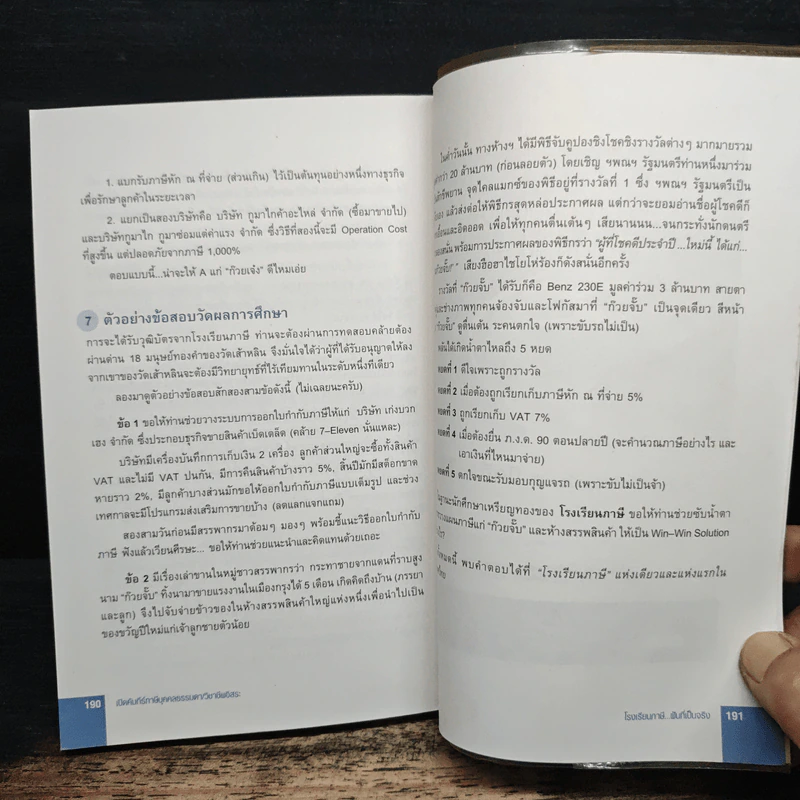 1. แบกรับภาษีหัก ณ ที่จ่าย (ส่วนเกิน) ไว้เป็นต้นทุนอย่างหนึ่งทางธุรกิจ
เพื่อรักษาลูกค้าในระยะเวลา
2. แยกเป็นสองบริษัทคือ บริษัท กูมาไกค้าอะไหล่ จำกัด (ซื้อมาขายไป)
และบริษัทกูมาไก กูมาซ่อมแต่ค่าแรง จำกัด ซึ่งวิธีที่สองนี้จะมี Operation Cost
ที่สูงขึ้น แต่ปลอดภัยจากภาษี 1,000%
ตอบแบบนี้...น่าจะให้ A แก่ "ก๊วยเจ๋ง" ดีไหมเอ่ย
7 ตัวอย่างข้อสอบวัดผลการศึกษา
การจะได้รับวุฒิบัตรจากโรงเรียนภาษี ท่านจะต้องผ่านการทดสอบคล้ายต้อง
ผ่านด่าน 18 มนุษย์ทองคำของวัดเส้าหลิน จึงมั่นใจได้ว่าผู้ที่ได้รับอนุญาตให้ลง
จากเขาของวัดเส้าหลินจะต้องมีวิทยายุทธ์ที่ไร้เทียมทานในระดับหนึ่งทีเดียว
ลองมาดูตัวอย่างข้อสอบสักสองสามข้อดังนี้ (ไม่เฉลยนะครับ)
ข้อ 1 ขอให้ท่านช่วยวางระบบการออกใบกำกับภาษีให้แก่ บริษัท เก่งบวก
เฮง จำกัด ซึ่งประกอบธุรกิจขายสินค้าเบ็ดเตล็ด (คล้าย 7–Eleven นั่นแหละ)
บริษัทมีเครื่องบันทึกการเก็บเงิน 2 เครื่อง ลูกค้าส่วนใหญ่จะซื้อทั้งสินค้า
VAT และไม่มี VAT ปนกัน, มีการคืนสินค้าบ้างราว 5%, สิ้นปีมักมีสต็อกขาด
หายราว 2%, มีลูกค้าบางส่วนมักขอให้ออกใบกำกับภาษีแบบเต็มรูป และช่วง
เทศกาลจะมีโปรแกรมส่งเสริมการขายบ้าง (ลดแลกแจกแถม)
สองสามวันก่อนมีสรรพากรมาด้อมๆ มองๆ พร้อมชี้แนะวิธีออกใบกำกับ
ภาษี ฟังแล้วเวียนศีรษะ... ขอให้ท่านช่วยแนะนำและคิดแทนด้วยเถอะ
ข้อ 2 มีเรื่องเล่าขานในหมู่ชาวสรรพากรว่า กระทาชายจากแดนที่ราบสูง
นาม "ก๊วยจั๊บ" ทิ้งนามาขายแรงงานในเมืองกรุงได้ 5 เดือน เกิดคิดถึงบ้าน (ภรรยา
และลูก) จึงไปจับจ่ายข้าวของในห้างสรรพสินค้าใหญ่แห่งหนึ่งเพื่อนำไปเป็น
ของขวัญปีใหม่แก่เจ้าลูกชายตัวน้อย
190 เปิดคัมภีร์ภาษีบุคคลธรรมดา/วิชาชีพอิสระ
ในค่ำวันนั้น ทางห้างฯ ได้มีพิธีจับคูปองชิงโชคชิงรางวัลต่างๆ มากมายรวม
กว่า 20 ล้านบาท (ก่อนลอยตัว) โดยเชิญ ฯพณฯ รัฐมนตรีท่านหนึ่งมาร่วม
จุดไคลแมกซ์ของพิธีอยู่ที่รางวัลที่ 1 ซึ่ง ฯพณฯ รัฐมนตรีเป็น
แล้วส่งต่อให้พิธีกรสุดหล่อประกาศผล แต่กว่าจะยอมอ่านชื่อผู้โชคดีก็
และอิดออด เพื่อให้ทุกคนตื่นเต้นๆ เสียนานนน...จนกระทั่งนักดนตรี
พร้อมการประกาศผลของพิธีกรว่า "ผู้ที่โชคดีประจำปี...ใหม่นี้ ได้แก่...
"ก๊วยจั๊บ" " เสียงฮือฮาไชโยโห่ร้องก็ดังสนั่นอีกครั้ง
รางวัลที่ "ก๊วยจั๊บ" ได้รับก็คือ Benz 230E มูลค่าร่วม 3 ล้านบาท สายตา
และช่างภาพทุกคนจ้องจับและโฟกัสมาที่ "ก๊วยจั๊บ" เป็นจุดเดียว สีหน้า
"ก๊วยจั๊บ" ดูตื่นเต้น ระคนตกใจ (เพราะขับรถไม่เป็น)
ได้เกิดน้ำตาไหลถึง 5 หยด
หยดที่ 1 ดีใจเพราะถูกรางวัล
หยดที่ 2 เมื่อต้องถูกเรียกเก็บภาษีหัก ณ ที่จ่าย 5%
หยดที่ 3 ถูกเรียกเก็บ VAT 7%
หยดที่ 4 เมื่อต้องยื่น ภ.ง.ด. 90 ตอนปลายปี (จะคำนวณภาษีอย่างไร และ
เอาเงินที่ไหนมาจ่าย)
หยดที่ 5 ตกใจขณะรับมอบกุญแจรถ (เพราะขับไม่เป็นจ้า)
ในฐานะนักศึกษาเหรียญทองของ โรงเรียนภาษี ขอให้ท่านช่วยซับน้ำตา
วางแผนภาษีแก่ "ก๊วยจั๊บ" และห้างสรรพสินค้า ให้เป็น Win–Win Solution
นี้ พบคำตอบได้ที่ "โรงเรียนภาษี" แห่งเดียวและแห่งแรกใน
โรงเรียนภาษี...ฝันที่เป็นจริง 191